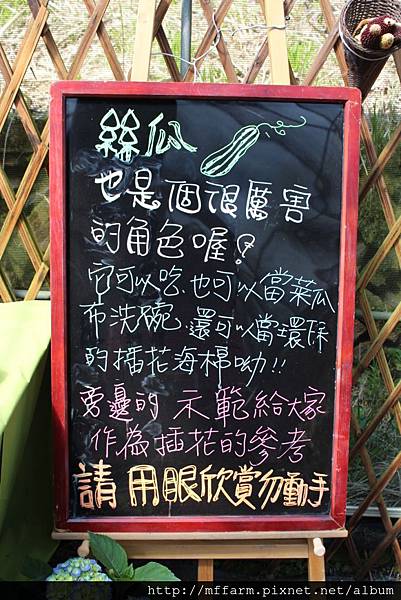 絲瓜
也是個很厲害
的角色喔!
它可以吃.也可以當菜瓜
布洗碗 還可以當環保
的插花海棉呦!!
旁邊的 示範給大家
作為插花的參考
請用眼欣賞勿動手
http://mffarm.pixnet.net/album